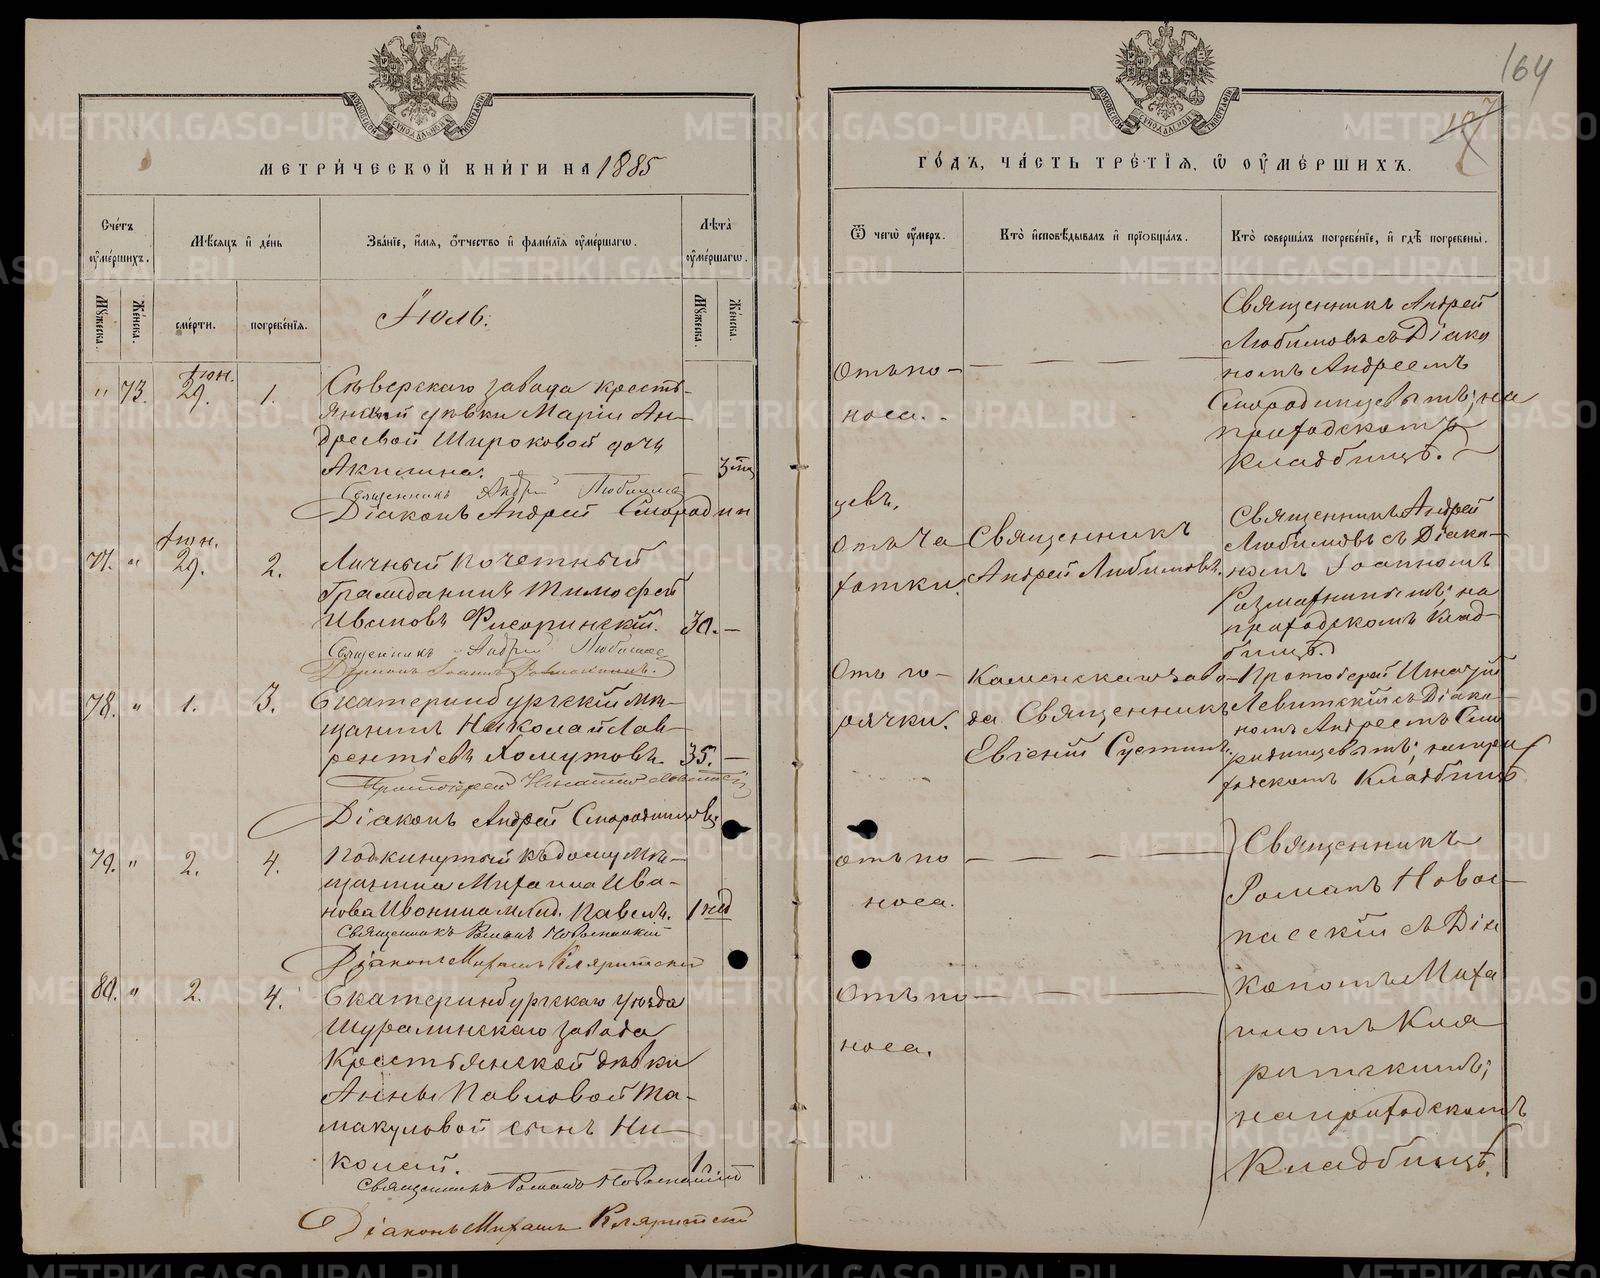 164
МЕТРИ́ЧЕСКОЙ КНИ́ГИ НА 1885
ГО́ДЪ, ЧА́СТЬ ТРЕ́ТЇѦ, Ѡ ОУ҆МЕ́РШИХЪ.
Сче́тъ оу҆ме́ршихъ.
Мѣ́сѧцъ и҆ де́нь
Зва́нїе, и҆́мѧ, ѻ҆́тчество и҆ фами́лїѧ оу҆ме́ршагѡ.
Лѣ́та оу҆ме́ршагѡ.
Ѿ чегѡ̀ оу҆́меръ.
Кто̀ и҆сповѣ́дывалъ и҆ прїѻбща́лъ.
Кто̀ соверша́лъ погребе́нїе, и҆ гдѣ̀ погребены̀.
Мꙋ́жеска.
Же́нска.
сме́рти.
погребе́нїѧ.
Іюль.
Мꙋ́жеска.
Же́нска.
" 73. Іюн. 29. 1.
Сѣверскаго завода кресть-
янской дѣвки Маріи Ан-
дреевой Широковой дочь
Акилина. 3 мц
Священникъ Андрей Любимовъ
Діаконъ Андрей Смородин
цевъ.
Отъ по-
носа.
Священникъ Андрей
Любимовъ съ Діако
номъ Андреемъ
Смородинцевымъ; на
приходскомъ
кладбищѣ.
77. " Іюн. 29. 2.
Личный почетный
Гражданинъ Тимофей
Ивановъ Фигоринскій. 30. —
Священникъ Андрей Любимовъ
Діаконъ Іоаннъ
Отъ ча
хотки.
Священникъ
Андрей Любимовъ.
Священникъ Андрей
Любимовъ съ Діако-
номъ Іоанномъ
на
приходскомъ клад-
бищѣ.
78. " 1. 3.
Екатеринбургскій мѣ-
щанинъ Николай Лав-
рентіевъ Хомутовъ 35. —
Протоіерей Игнатій Левитскій
Діаконъ Андрей Смородинцовъ
Отъ го-
рячки.
Каменскаго заво-
да Священникъ
Евгеній Сустинъ.
Протоіерей Игнатій
Левитскій съ Діако-
номъ Андреемъ Смо
родинцевымъ; на при
ходскомъ кладбищѣ
79. " 2. 4.
Подкинутый къ дому мѣ-
щанина Михаила Ива-
нова Ивонина млад. Павелъ. 1 нед
Священникъ Романъ Новоспасскій
Діаконъ Михаилъ Кляритскій
Отъ по
носа.
Священникъ
Романъ Новос-
пасскій съ Діа
кономъ Миха
иломъ Кля
ритскимъ;
на приходскомъ
кладбищѣ.
80. " 2. 4.
Екатеринбургскаго уѣзда
Шуралинскаго завода
Крестьянской дѣвки
Анны Павловой Та-
макуловой сынъ Ни-
колай.
Священникъ Романъ Новоспасскій
Діаконъ Михаилъ Кляритскій
Отъ по
носа.